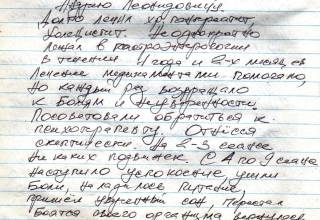 Леонидовича.
Долго лечил хр. панкреатит,
холецистит. Неоднократно
лежал в гастроэнтерологии
в течении 1 года и 2-х месяцев
Лечение медикаментами помогало,
но каждый раз возвращало
к болям и
Посоветовали обратиться к
психотерапевту. Отнёсся
скептически. На 2-3 сеансе
Никаких подвижек. С 4 по 9 сеанс
наступило успокоение, ушли
боли, наладилось питание,
пришёл сон, перестал
боятся своего организма